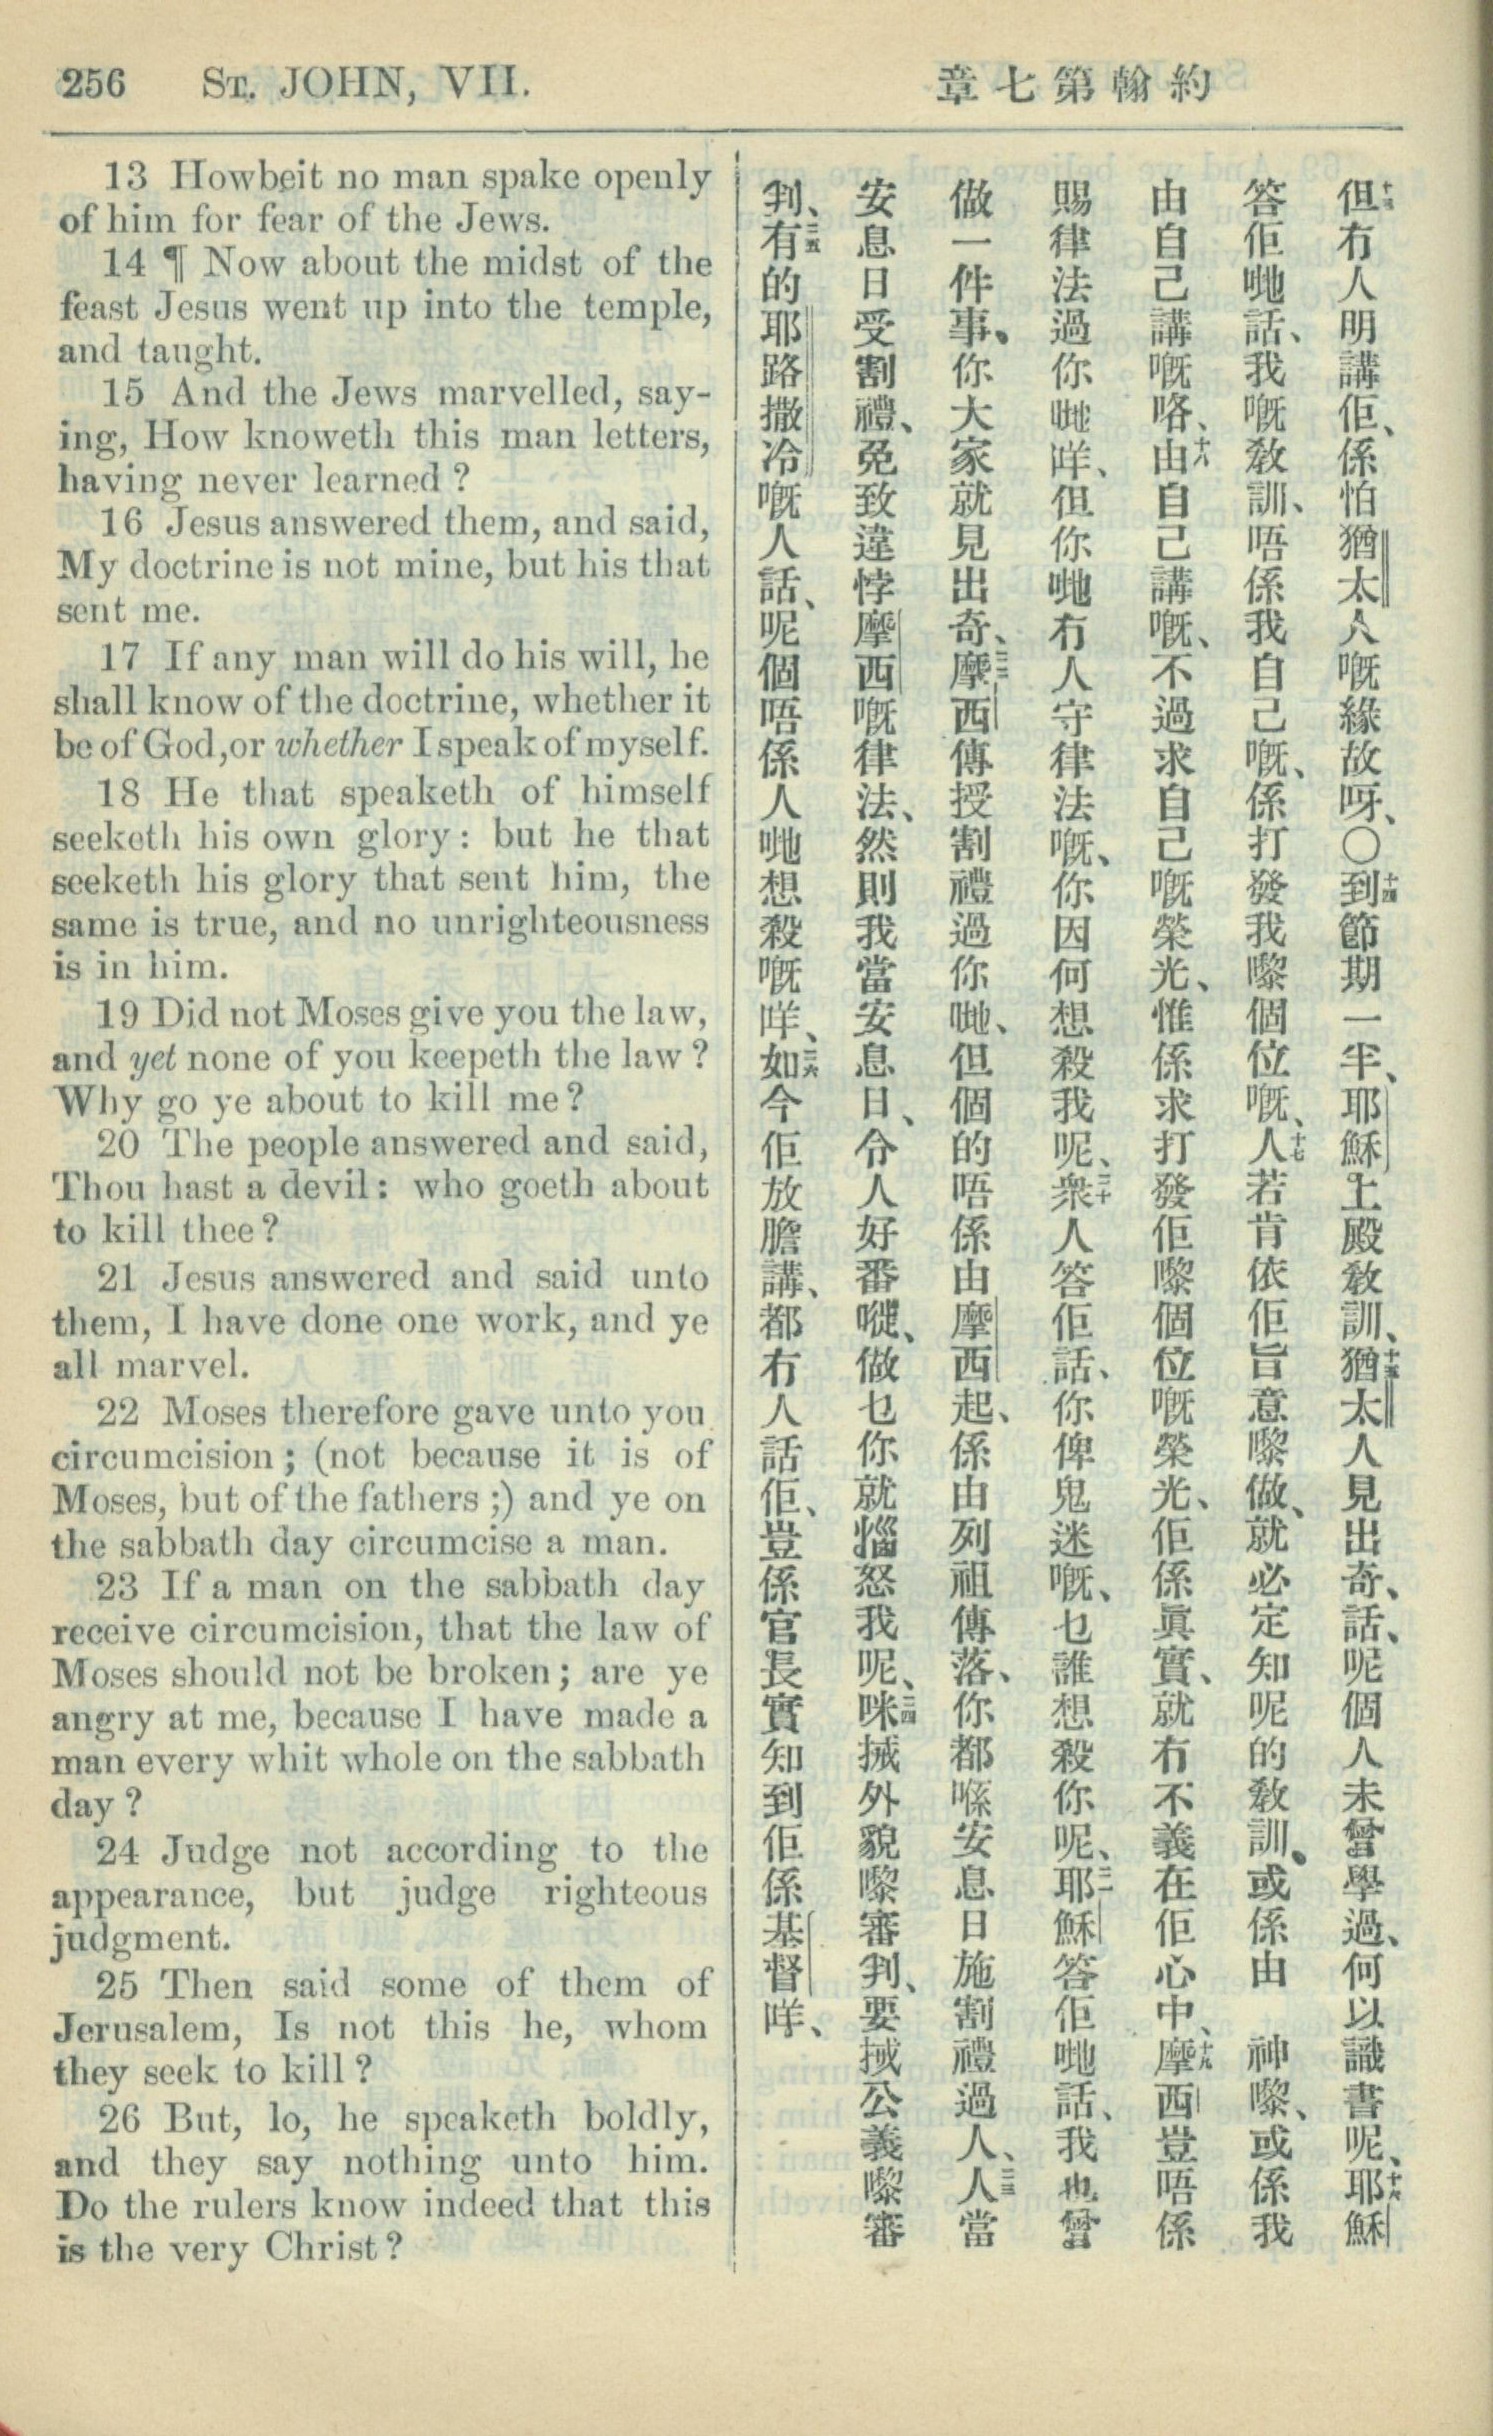 256 ST. JOHN, VII.
章七第翰約
13 Howbeit no man spake openly
of him for fear of the Jews.
14 ¶ Now about the midst of the
feast Jesus went up into the temple,
and taught.
15 And the Jews marvelled, say-
ing, How knoweth this man letters,
having never learned ?
16 Jesus answered them, and said,
My doctrine is not mine, but his that
sent me.
17 If any man will do his will, he
shall know of the doctrine, whether it
be of God, or whether I speak of myself.
18 He that speaketh of himself
seeketh his own glory : but he that
seeketh his glory that sent him, the
same is true, and no unrighteousness
is in him.
19 Did not Moses give you the law,
and yet none of you keepeth the law ?
Why go ye about to kill me ?
20 The people answered and said,
Thou hast a devil : who goeth about
to kill thee ?
21 Jesus answered and said unto
them, I have done one work, and ye
all marvel.
22 Moses therefore gave unto you
circumcision ; (not because it is of
Moses, but of the fathers ;) and ye on
the sabbath day circumcise a man.
23 If a man on the sabbath day
receive circumcision, that the law of
Moses should not be broken ; are ye
angry at me, because I have made a
man every whit whole on the sabbath
day ?
24 Judge not according to the
appearance, but judge righteous
judgment.
25 Then said some of them of
Jerusalem, Is not this he, whom
they seek to kill ?
26 But, lo, he speaketh boldly,
and they say nothing unto him.
Do the rulers know indeed that this
is the very Christ ?
十三但冇人明講佢、係怕猶太人嘅緣故呀、〇十四到節期一半、耶穌上殿教訓、十五猶太人見出奇、話、呢個人未曾學過、何以識書呢、十六耶穌
答佢哋話、我嘅教訓、唔係我自己嘅、係打發我嚟個位嘅、十七人若肯依佢旨意嚟做、就必定知呢的教訓。或係由 神嚟、或係我
由自己講嘅咯、十八由自己講嘅、不過求自己嘅榮光、惟係求打發佢嚟個位嘅榮光、佢係眞實、就冇不義在佢心中、十九摩西豈唔係
賜律法過你哋咩、但你哋冇人守律法嘅、你因何想殺我呢、二十衆人答佢話、你俾鬼迷嘅、乜誰想殺你呢、二一耶穌答佢哋話、我也曾
做一件事。你大家就見出奇、二二摩西傳授割禮過你哋、但個的唔係由摩西起、係由列祖傳落、你都喺安息日施割禮過人、二三人當
安息日受割禮、免致違悖摩西嘅律法、然則我當安息日、令人好番嗮、做乜你就惱怒我呢、二四咪搣外貌嚟審判、要搣公義嚟審
判、二五有的耶路撒冷嘅人話、呢個唔係人哋想殺嘅咩、二六如今佢放膽講、都冇人話佢、豈係官長實知到佢係基督咩、